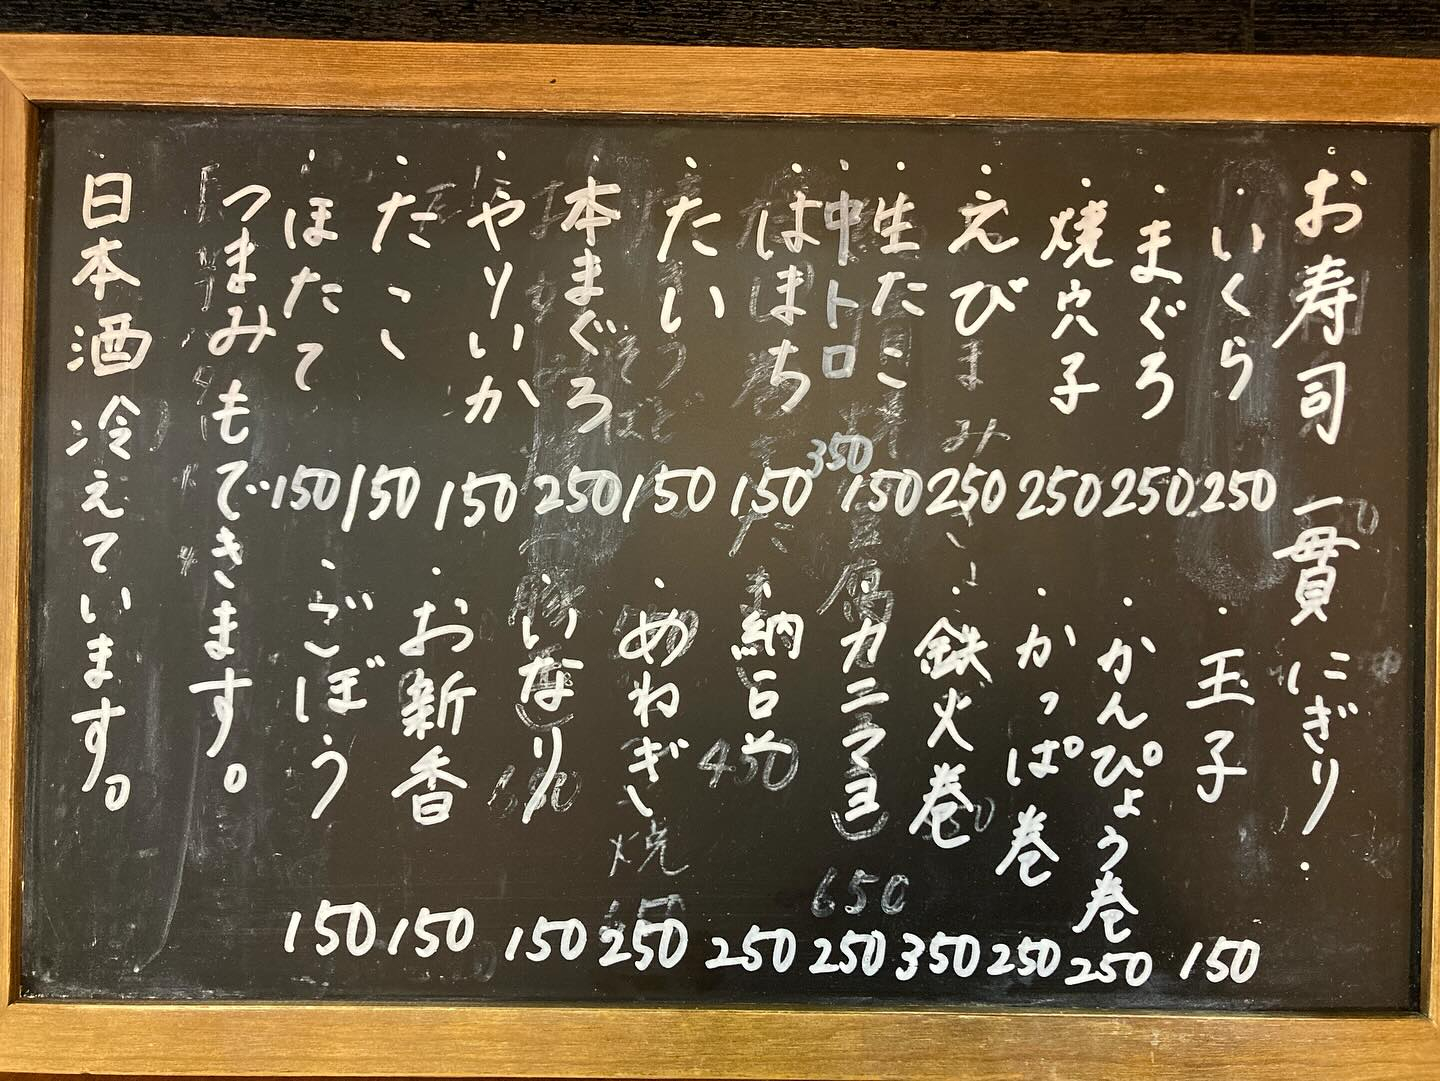 お寿司 一貫 にぎり.
・いくら 250
・まぐろ 250
・焼穴子 250
・えび 250
・生たこ 150
・中トロ 350
・はまち 150
・たい 150
・本まぐろ 250
・やりいか 150
・たこ 150
・ほたて 150
・玉子 150
・かんぴょう巻 250
・かっぱ巻 250
・鉄火巻 350
・カニマヨ 250
・納豆 250
・めねぎ 250
・いなり 150
・お新香 150
・ごぼう 150
つまみもできます。
日本酒 冷えています。